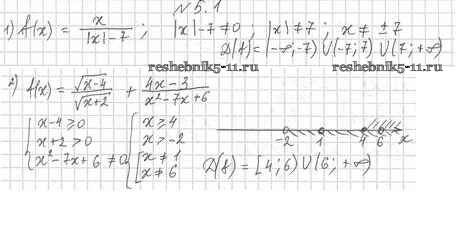 № 5.1
1) f(x) = x / (|x|-7) ; |x|-7≠0 ; |x|≠7 ; x ≠ ±7
D(f) = (-∞;-7) ∪ (-7;7) ∪ (7; +∞)
reshebnik5-11.ru reshebnik5-11.ru
2) f(x) = √(x-4) / √(x+2) + (4x-3) / (x²-7x+6)
{ x-4 ≥ 0 { x ≥ 4
x+2 > 0 x > -2
x²-7x+6 ≠ 0 [ x ≠ 1
x ≠ 6
-2 1 4 6 x
D(f) = [4;6) ∪ (6; +∞)